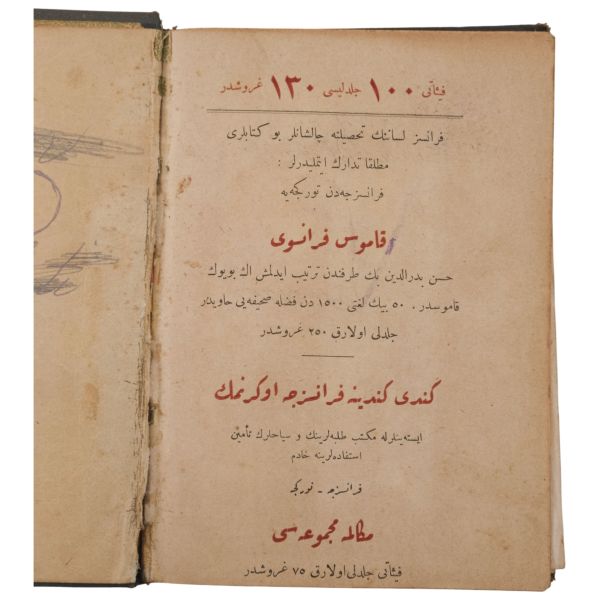 فیئاتی ۱۰۰ جلدلیسی ۱۳۰ غروشدر
فرانسز لساننك تحصیلنه چالیشانلر بو كتابلری
مطلقا تدارك ایتملیدرلر :
فرانسزجه‌دن تورکجه‌یه
قاموس فرانسوی
حسن بدرالدین بك طرفندن ترتیب ایدلمش اك بویوك
قاموسدر . ۵۰ بیك لغتی ۱۵۰۰ دن فضله صحیفه‌یی حاویدر
جلدلی اولارق ۲۵۰ غروشدر
كندی كندینه فرانسزجه اوكرنمك
ایسته‌ینلرله مكتب طلبه‌لرینك و سیاحلرك تأمین
استفاده‌لرینه خادم
فرانسزجه - تورکجه
مكالمه مجموعه‌سی
فیئاتی جلدلی اولارق ۷۵ غروشدر